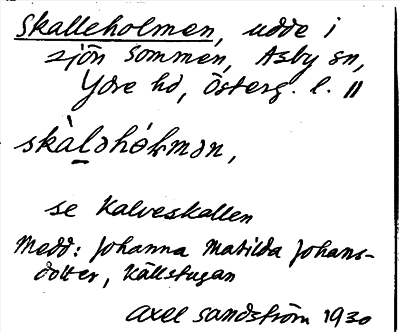 Skalleholmen, udde i
sjön Sommen, Asby sn,
Ydre hd, Österg. l. ||
skàləhól̵mən,
se Kalveskallen
Medd: Johanna Matilda Johans-
dotter, Källstugan
Axel Sandström 1930